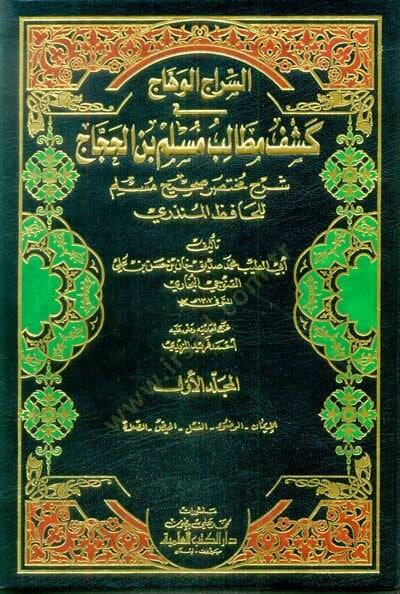 السراج الوهاج
في
كشف مطالب مسلم بن الحجاج
شرح مختصر صحيح مسلم
للحافظ المنذري
تأليف
أبي الطيب محمد صديق خان بن حسن بن علي
القنوجي البخاري
المتوفى ١٣٠٧ هـ
خرج أحاديثه وعلق عليه
أحمد فريد المزيدي
المجلد الأول
الإيمان - الوضوء - الغسل - الحيض - الصلاة
منشورات
محمد علي بيضون
دار الكتب العلمية
بيروت - لبنان